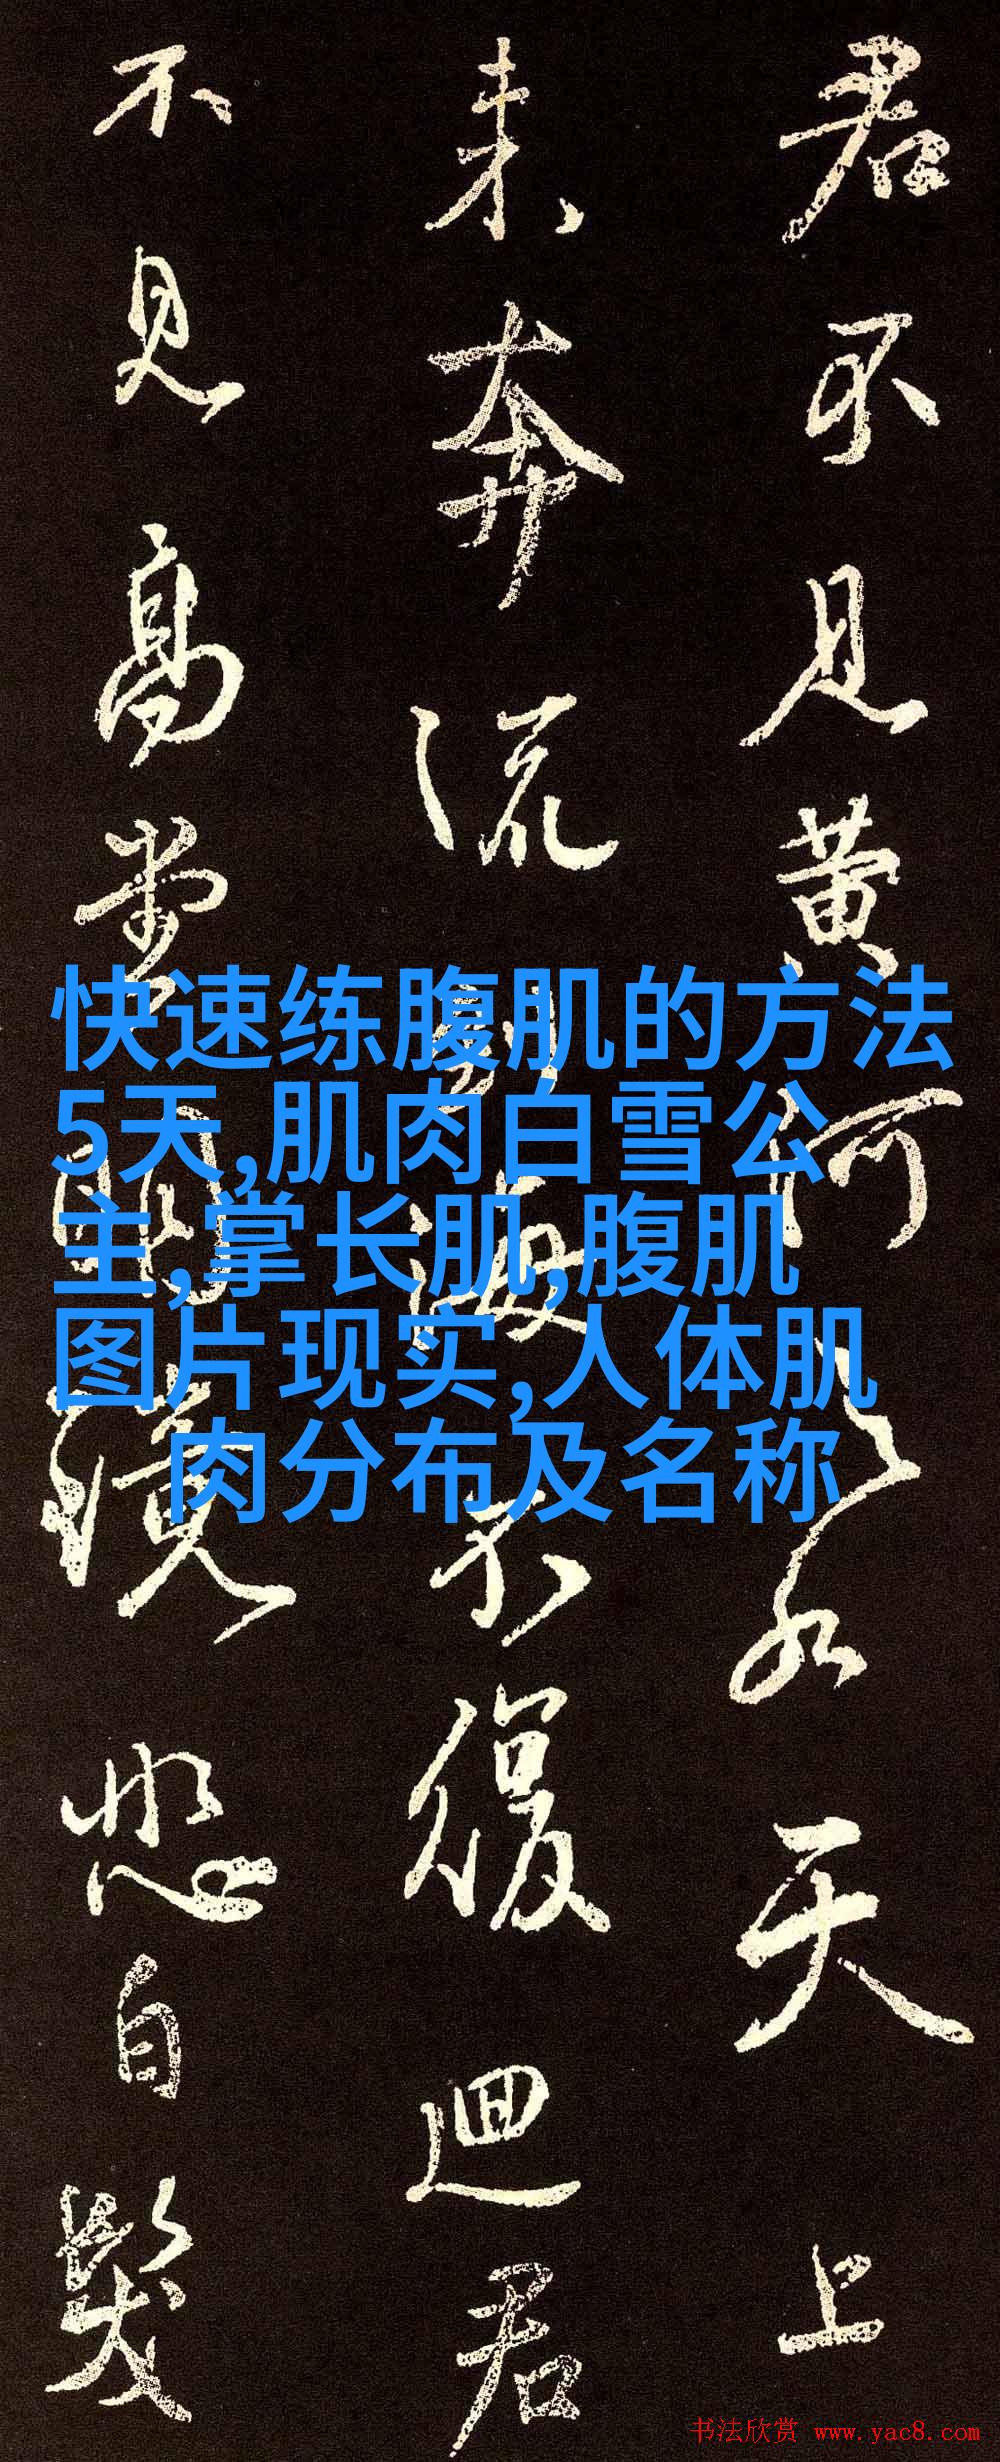 君不見黄河之水天上
来奔流到海不復迴君
不見高堂明鏡悲白髮
快速练腹肌的方法
5天,肌肉白雪公
主,掌长肌,腹肌
图片现实,人体肌
肉分布及名称
书法欣赏 www.yac8.com